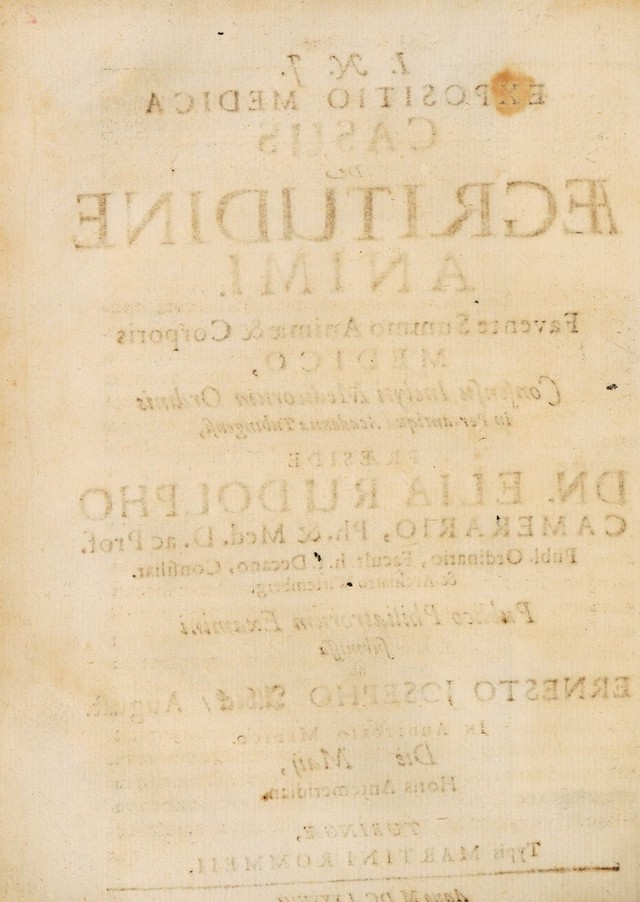 I. N. J.
EXPOSITIO MEDICA
CASUS
DE
ÆGRITUDINE
ANIMI.
Favente Summo Animæ & Corporis
MEDICO,
Consensu Inclyti Medicorum Ordinis
in Per-antiqua Academia Tubingensi,
PRÆSIDE
DN. ELIA RUDOLPHO
CAMERARIO, Ph. & Med. D. ac Prof.
Publ. Ordinario, Facult. h. t. Decano, Consiliar.
& Archiatro Wirtemberg.
Publico Philiatrorum Examini
submissa
ab
ERNESTO JOSEPHO / August.
IN AUDITORIO MEDICO.
Die Maij,
Horis Antemeridian.
TUBINGÆ,
Typis MARTINI ROMMEII.
Anno